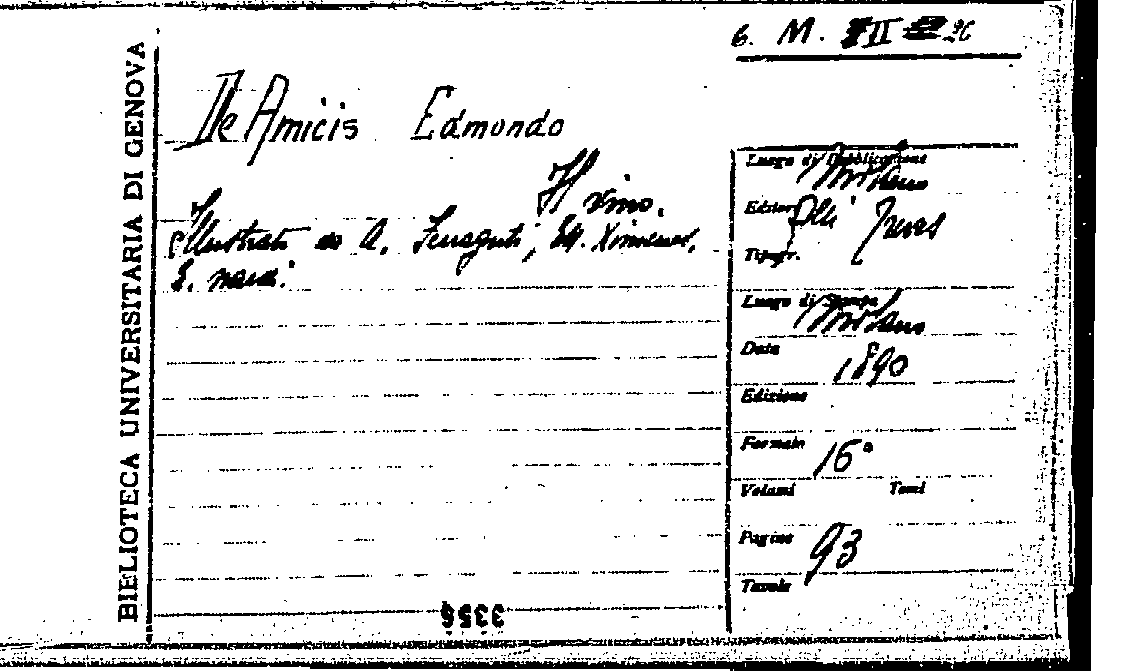 BIBLIOTECA UNIVERSITARIA DI GENOVA
6. M. II 26
De Amicis Edmondo
Il vino.
Illustrato da A. Ferraguti, Ed. Ximenes,
E. Nardi.
Luogo di Pubblicazione Milano
Editore F.lli Treves
Tipogr.
Luogo di Stampa Milano
Data 1890
Edizione
Formato 16°
Volumi Tomi
Pagine 93
Tavole